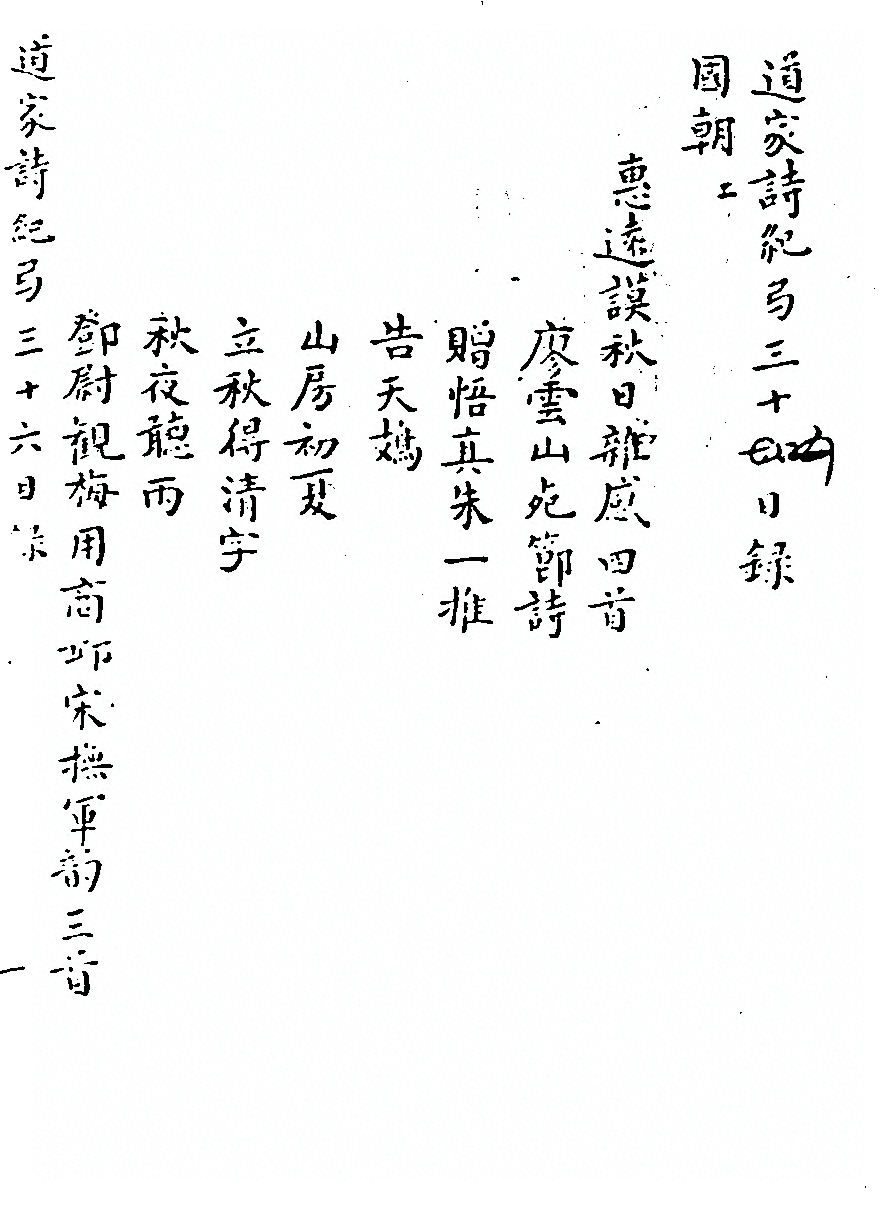 道家詩紀弓三十目録
國朝 工
惠遠謨秋日雜感四首
廖雲山死節詩
贈悟真朱一推
告天鴣
山房初夏
立秋得清字
秋夜聽雨
鄧尉觀梅用商邱宋撫軍韵三首
道家詩紀弓三十六目録
一